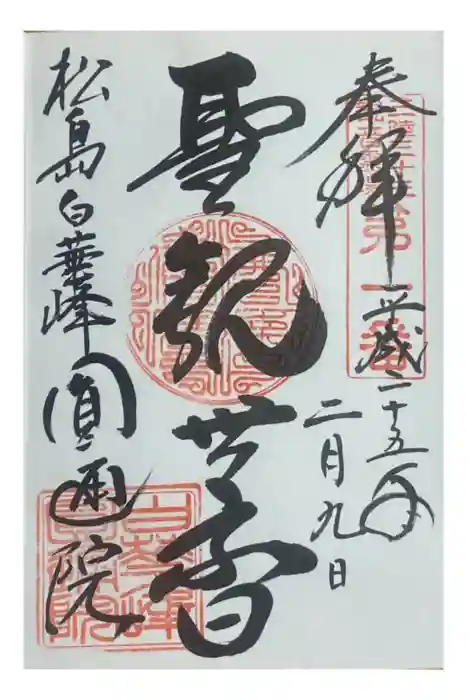 奉拜
平成二十五年
二月九日
聖観世音
松島白華峰
圓通院
三陸三十三
第一番
白華峰